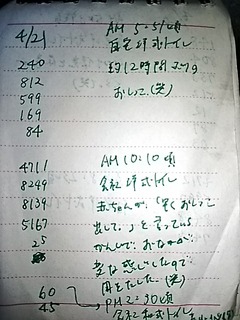 4/21
AM 5:51頃
自宅洋式トイレ
240
約12時間
812
599
おしっこ(笑)
169
84
4711
AM 10:10頃
8249
会社洋式トイレ
8139
赤ちゃんが、「早くおしっこ
5167
出して。」と言っている
25
かんじで、おなかが
変な感じがしたので
用をたした。(笑)
60
PM 2:30頃
45
会社和式トイレ